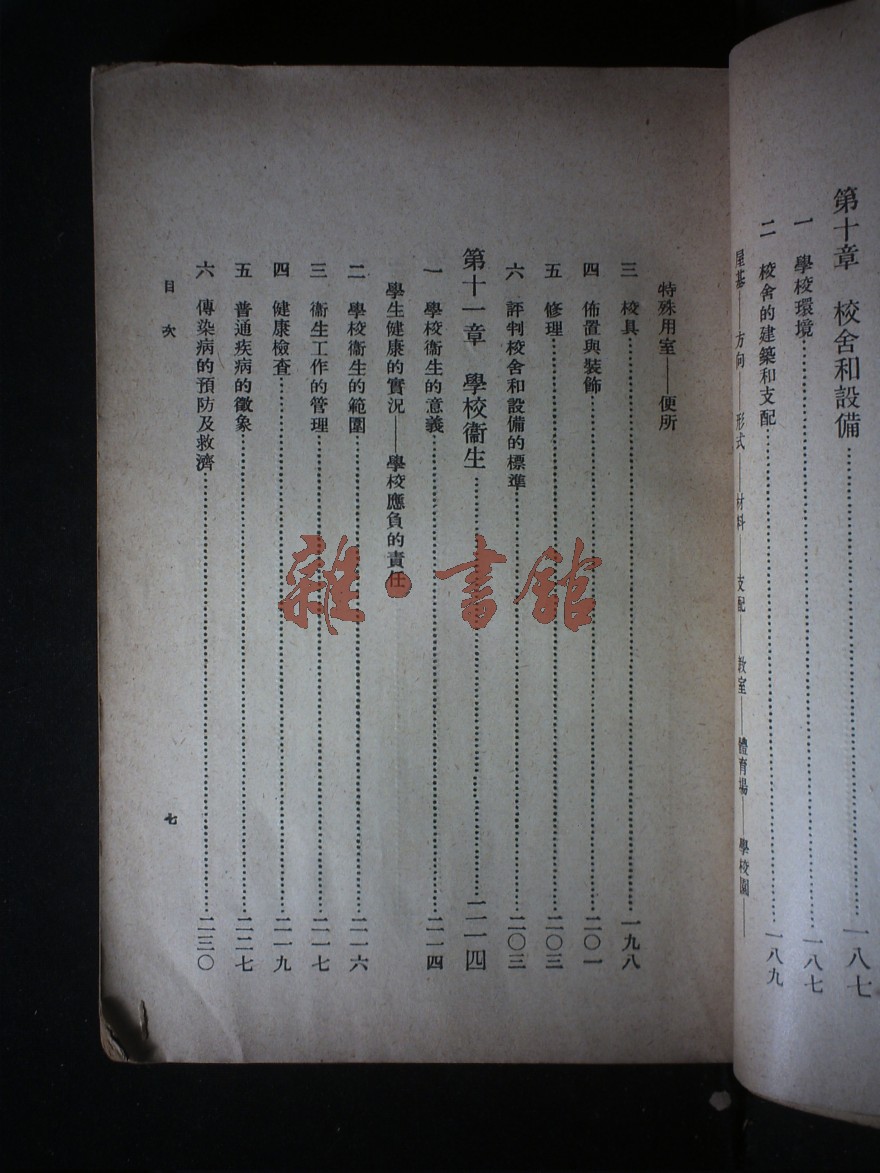 第十章　校舍和設備………一八七
一　學校環境………一八七
二　校舍的建築和支配………一八九
屋基——方向——形式——材料——支配——教室——體育場——學校園——
特殊用室——便所
三　校具………一九八
四　佈置與裝飾………二〇一
五　修理………二〇三
六　評判校舍和設備的標準………二〇三
第十一章　學校衞生………二一四
一　學校衞生的意義………二一四
學生健康的實況——學校應負的責任
二　學校衞生的範圍………二一六
三　衞生工作的管理………二一七
四　健康檢查………二一九
五　普通疾病的徵象………二二七
六　傳染病的預防及救濟………二三〇
目次
七
雜·書館